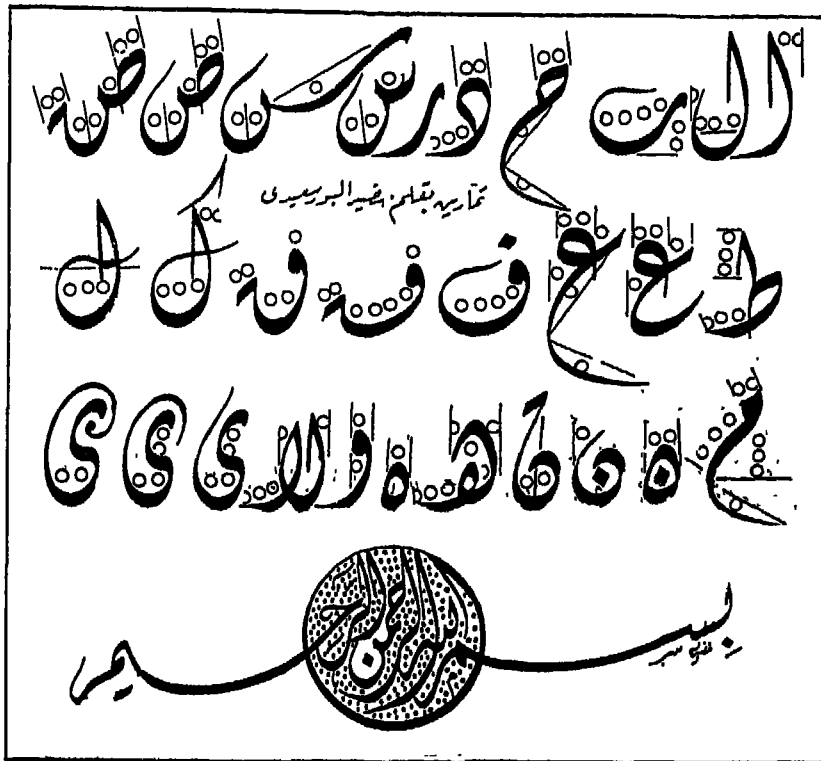 ا ل ب ح د ر س س ص ص
تمارين بقلم: خضير البورسعيدى
ط ع ع ف ف ف ك ل
م ه ه و لا ى ى ى
بسم الله الرحمن الرحيم